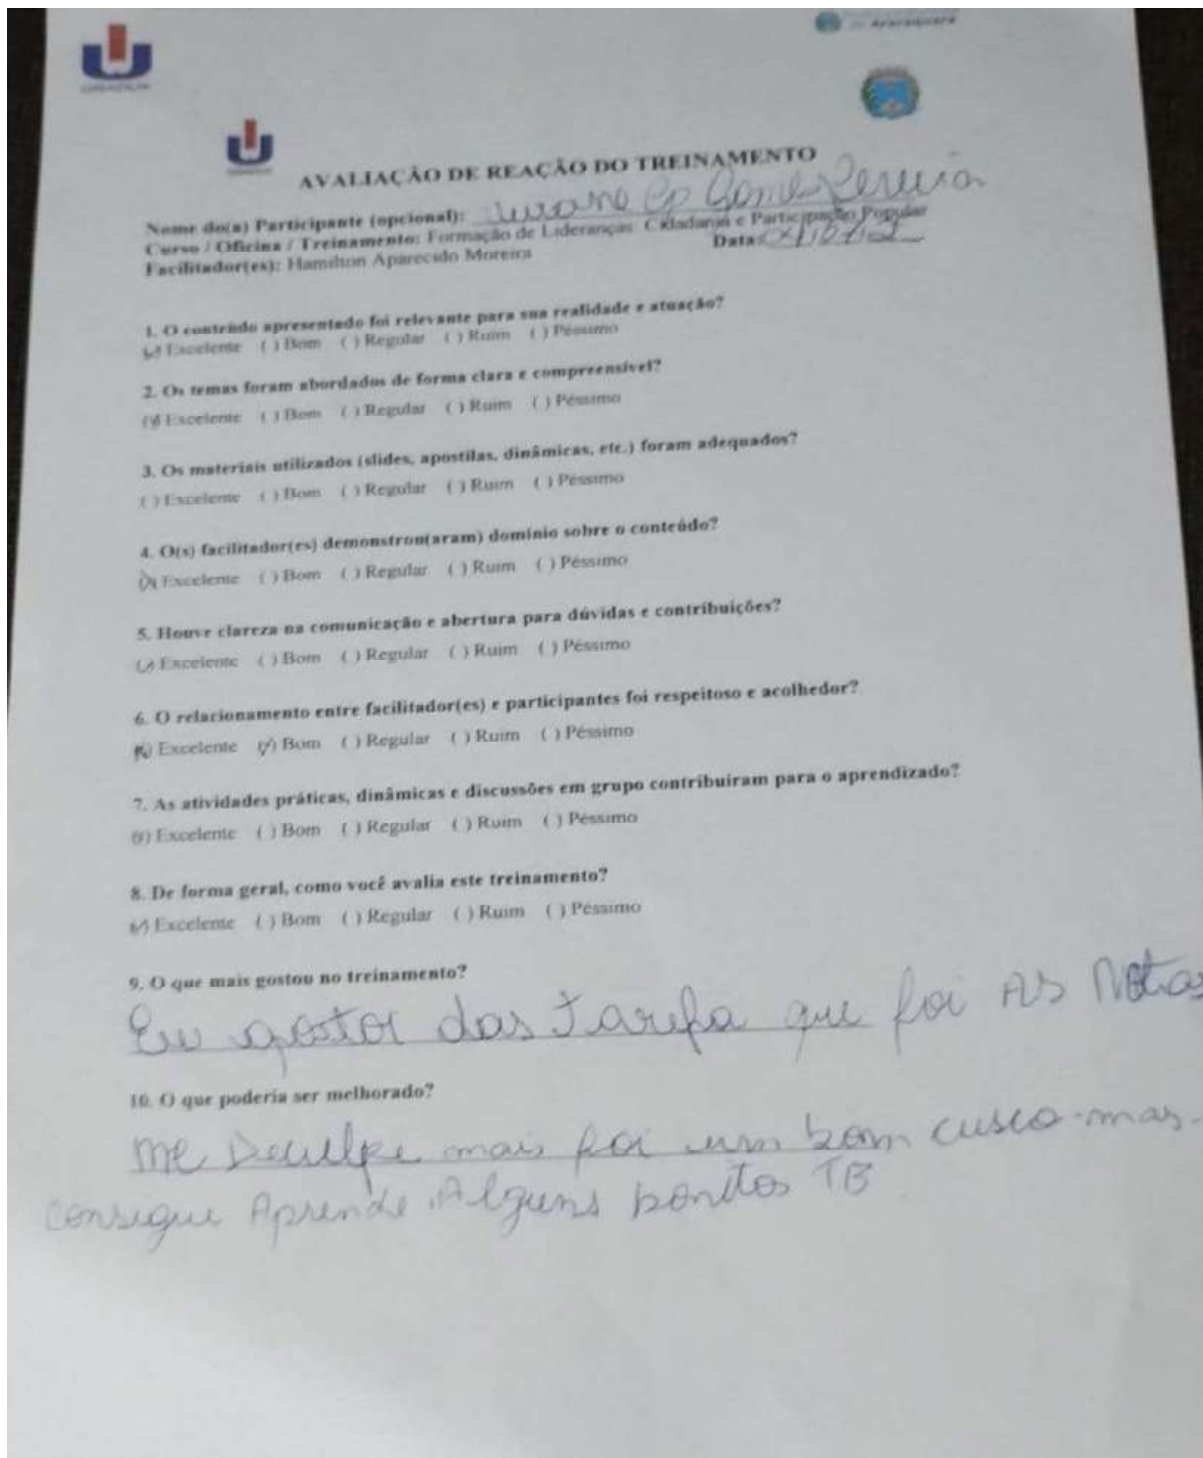 Araraquara
AVALIAÇÃO DE REAÇÃO DO TREINAMENTO
Nome do(a) Participante (opcional): Pereira
Curso / Oficina / Treinamento: Formação de Lideranças: Cidadania e Participação Popular
Facilitador(es): Hamilton Aparecido Moreira Data:
1. O conteúdo apresentado foi relevante para sua realidade e atuação?
(✓) Excelente ( ) Bom ( ) Regular ( ) Ruim ( ) Péssimo
2. Os temas foram abordados de forma clara e compreensível?
(✓) Excelente ( ) Bom ( ) Regular ( ) Ruim ( ) Péssimo
3. Os materiais utilizados (slides, apostilas, dinâmicas, etc.) foram adequados?
( ) Excelente ( ) Bom ( ) Regular ( ) Ruim ( ) Péssimo
4. O(s) facilitador(es) demonstrou(aram) domínio sobre o conteúdo?
(x) Excelente ( ) Bom ( ) Regular ( ) Ruim ( ) Péssimo
5. Houve clareza na comunicação e abertura para dúvidas e contribuições?
(✓) Excelente ( ) Bom ( ) Regular ( ) Ruim ( ) Péssimo
6. O relacionamento entre facilitador(es) e participantes foi respeitoso e acolhedor?
(x) Excelente (✓) Bom ( ) Regular ( ) Ruim ( ) Péssimo
7. As atividades práticas, dinâmicas e discussões em grupo contribuíram para o aprendizado?
(x) Excelente ( ) Bom ( ) Regular ( ) Ruim ( ) Péssimo
8. De forma geral, como você avalia este treinamento?
(✓) Excelente ( ) Bom ( ) Regular ( ) Ruim ( ) Péssimo
9. O que mais gostou no treinamento?
Eu gostor das Tarefa que foi AS Notas
10. O que poderia ser melhorado?
me Deculpe mais foi um bom cusco-mas-
consigue Aprende Alguns TB